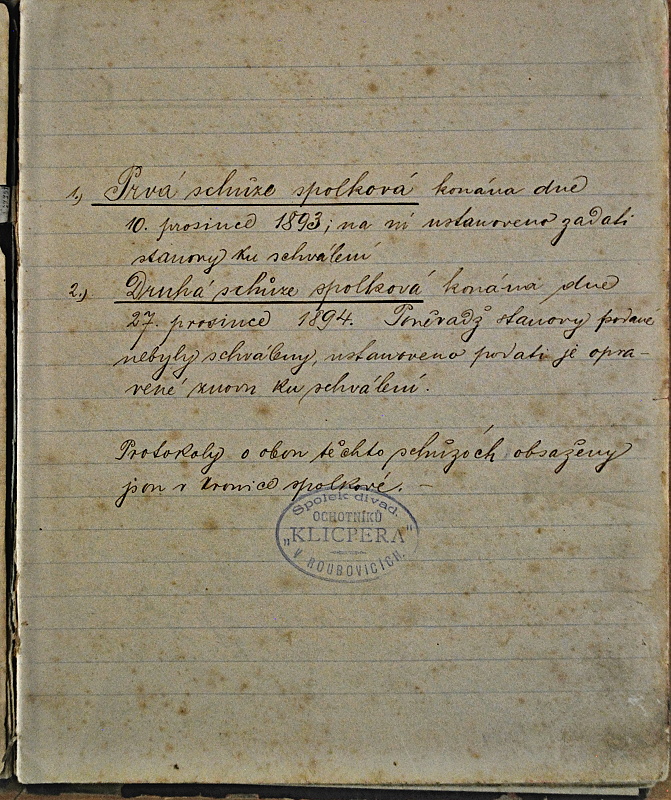 1.) Prvá schůze spolková konána dne
10. prosince 1893; na ní ustanoveno zadati
stanovy ku schválení
2.) Druhá schůze spolková konána dne
27. prosince 1894. Poněvadž stanovy podané
nebyly schváleny, ustanoveno podati je opra-
vené znovu ku schválení.
Protokoly o obou těchto schůzích obsaženy
jsou v kronice spolkové. –
Spolek divad.
OCHOTNÍKŮ
„KLICPERA"
V ROUBOVICÍCH.